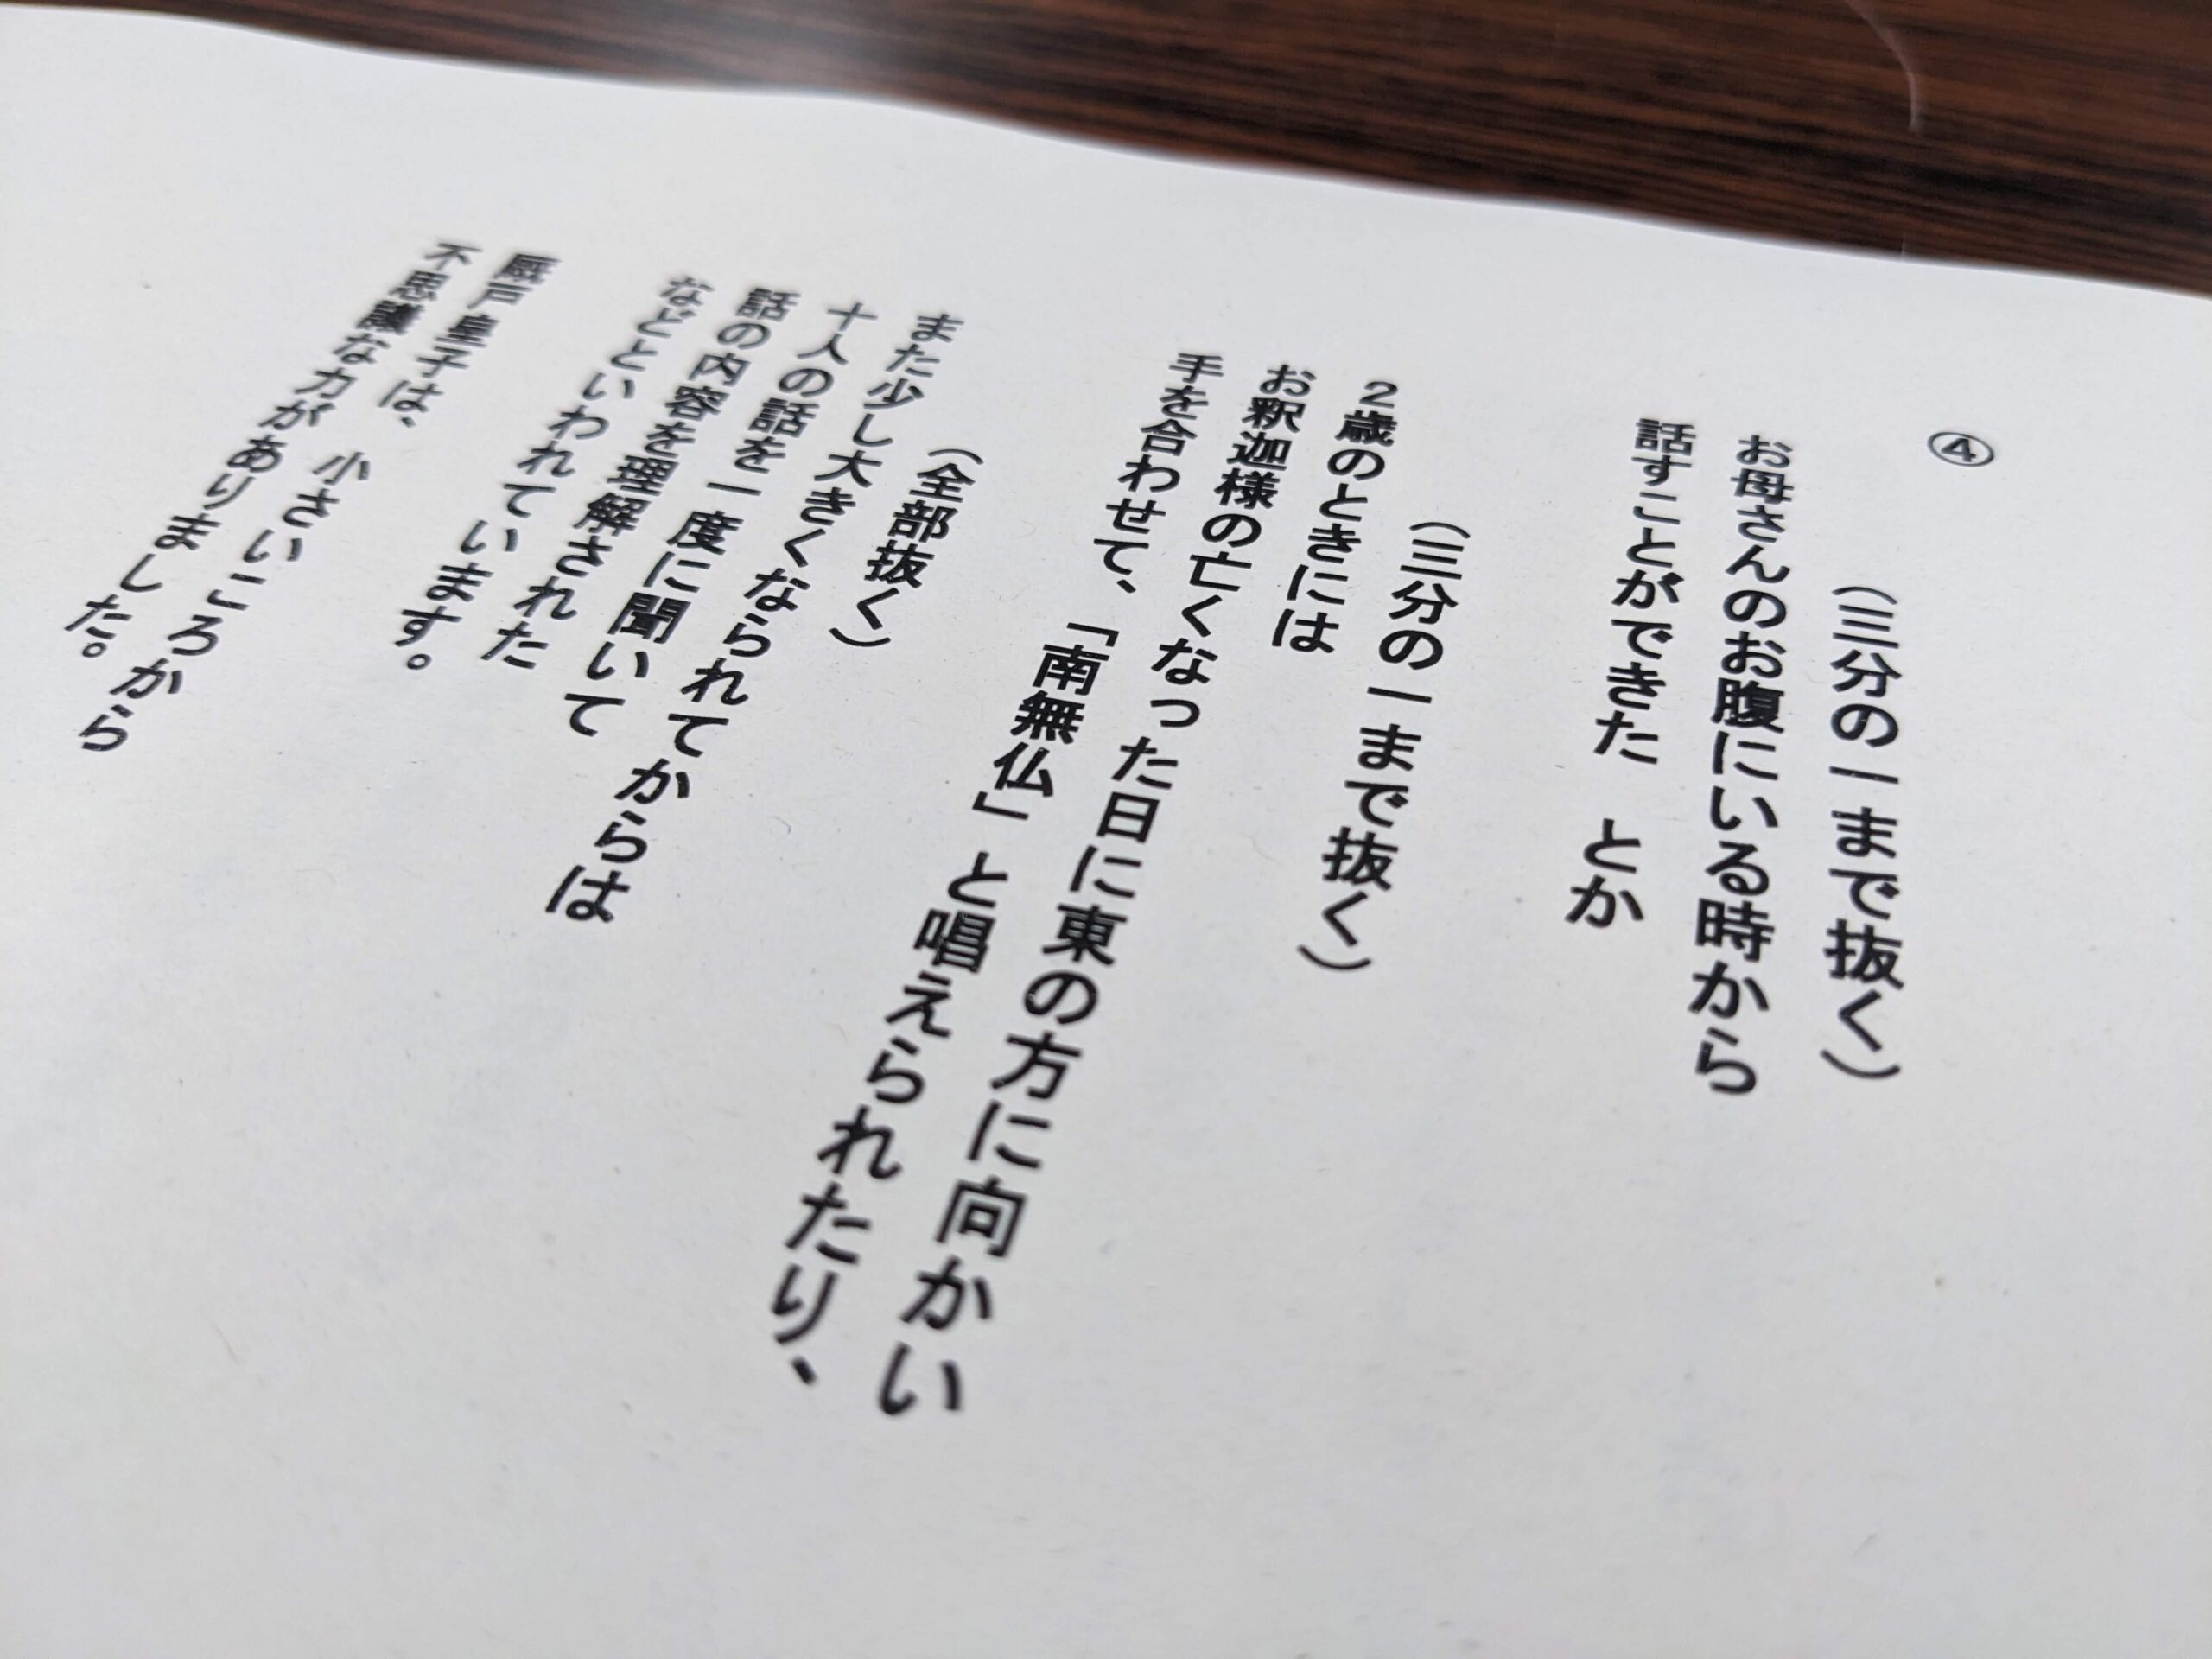 ④
（三分の一まで抜く）
お母さんのお腹にいる時から
話すことができた　とか
（三分の一まで抜く）
２歳のときには
お釈迦様の亡くなった日に東の方に向かい
手を合わせて、「南無仏」と唱えられたり、
（全部抜く）
また少し大きくなられてからは
十人の話を一度に聞いて
話の内容を理解された
などといわれています。
厩戸皇子は、小さいころから
不思議な力がありました。